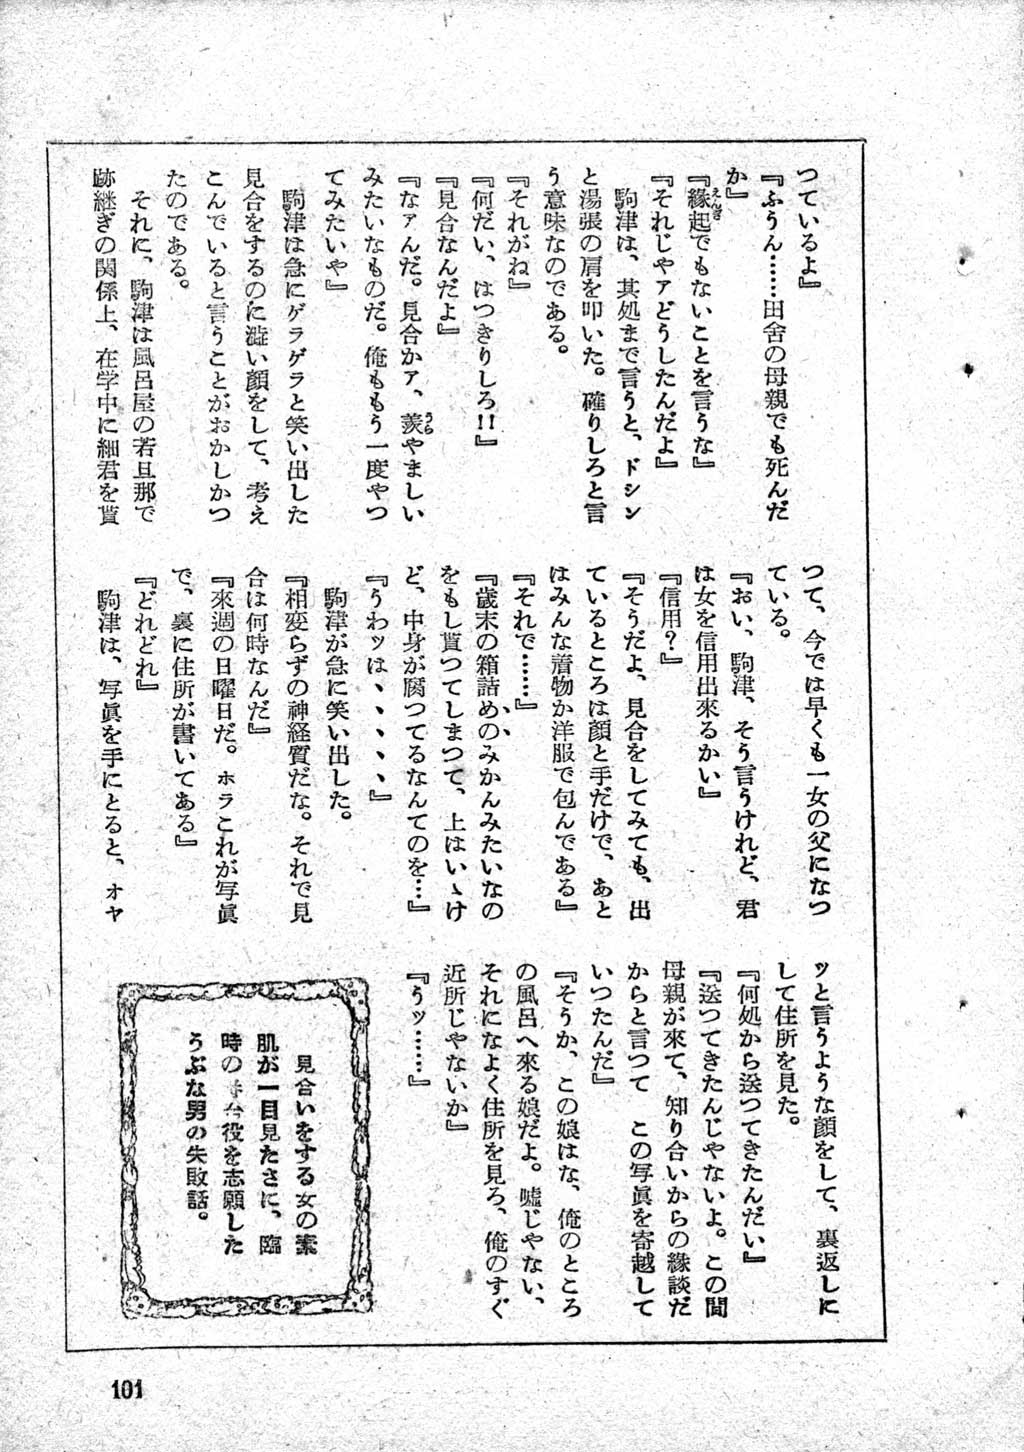 つているよ』
『ふうん……田舎の母親でも死んだ
か』
『縁起でもないことを言うな』
『それじやアどうしたんだよ』
　駒津は、其処まで言うと、ドシン
と湯張の肩を叩いた。確りしろと言
う意味なのである。
『それがね』
『何だい、はつきりしろ!!』
『見合なんだよ』
『なァんだ。見合かァ、羨やましい
みたいなものだ。俺ももう一度やつ
てみたいや』
　駒津は急にゲラゲラと笑い出した
見合をするのに澁い顔をして、考え
こんでいると言うことがおかしかつ
たのである。
　それに、駒津は風呂屋の若旦那で
跡継ぎの関係上、在学中に細君を貰
つて、今では早くも一女の父になつ
ている。
『おい、駒津、そう言うけれど、君
は女を信用出來るかい』
『信用？』
『そうだよ、見合をしてみても、出
ているところは顔と手だけで、あと
はみんな着物か洋服で包んである』
『それで……』
『歳末の箱詰めのみかんみたいなの
をもし貰つてしまつて、上はいゝけ
ど、中身が腐つてるなんてのを…』
『うわッは、、、、、』
　駒津が急に笑い出した。
『相変らずの神経質だな。それで見
合は何時なんだ』
『來週の日曜日だ。ホラこれが写眞
で、裏に住所が書いてある』
『どれどれ』
　駒津は、写眞を手にとると、オヤ
ッと言うような顔をして、裏返しに
して住所を見た。
『何処から送つてきたんだい』
『送つてきたんじやないよ。この間
母親が來て、知り合いからの縁談だ
からと言つて　この写眞を寄越して
いつたんだ』
『そうか、この娘はな、俺のところ
の風呂へ来る娘だよ。嘘じやない、
それになよく住所を見ろ、俺のすぐ
近所じやないか』
『うッ……』
見合いをする女の素
肌が一目見たさに、臨
時の台役を志願した
うぶな男の失敗話。
101